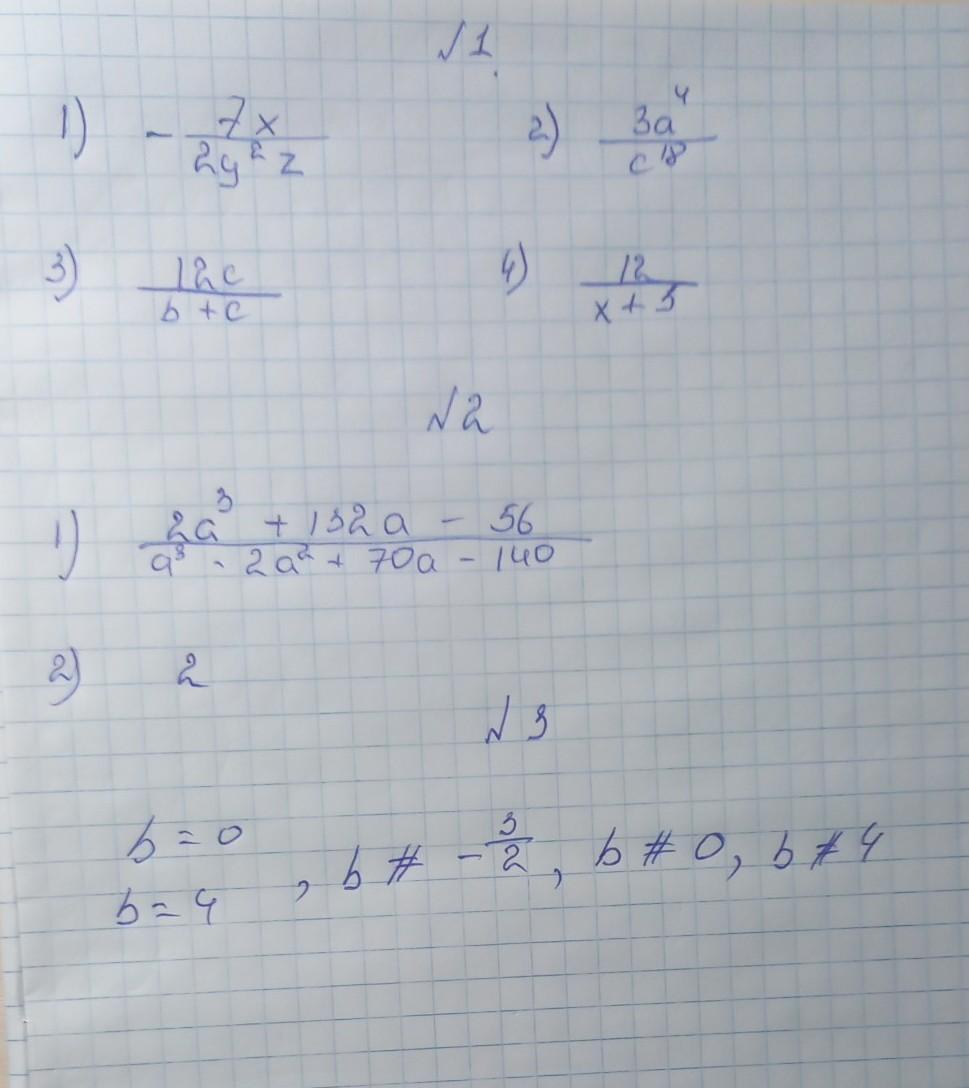 №1.
1) - 7x / 2y² z   2) 3a⁴ / c¹⁸
3) 12c / b + c   4) 12 / x + 5
№2
1) 2a³ + 132a - 56 / a³ - 2a² + 70a - 140
2) 2
№3
b = 0
b = 4 , b ≠ - 3/2 , b ≠ 0, b ≠ 4